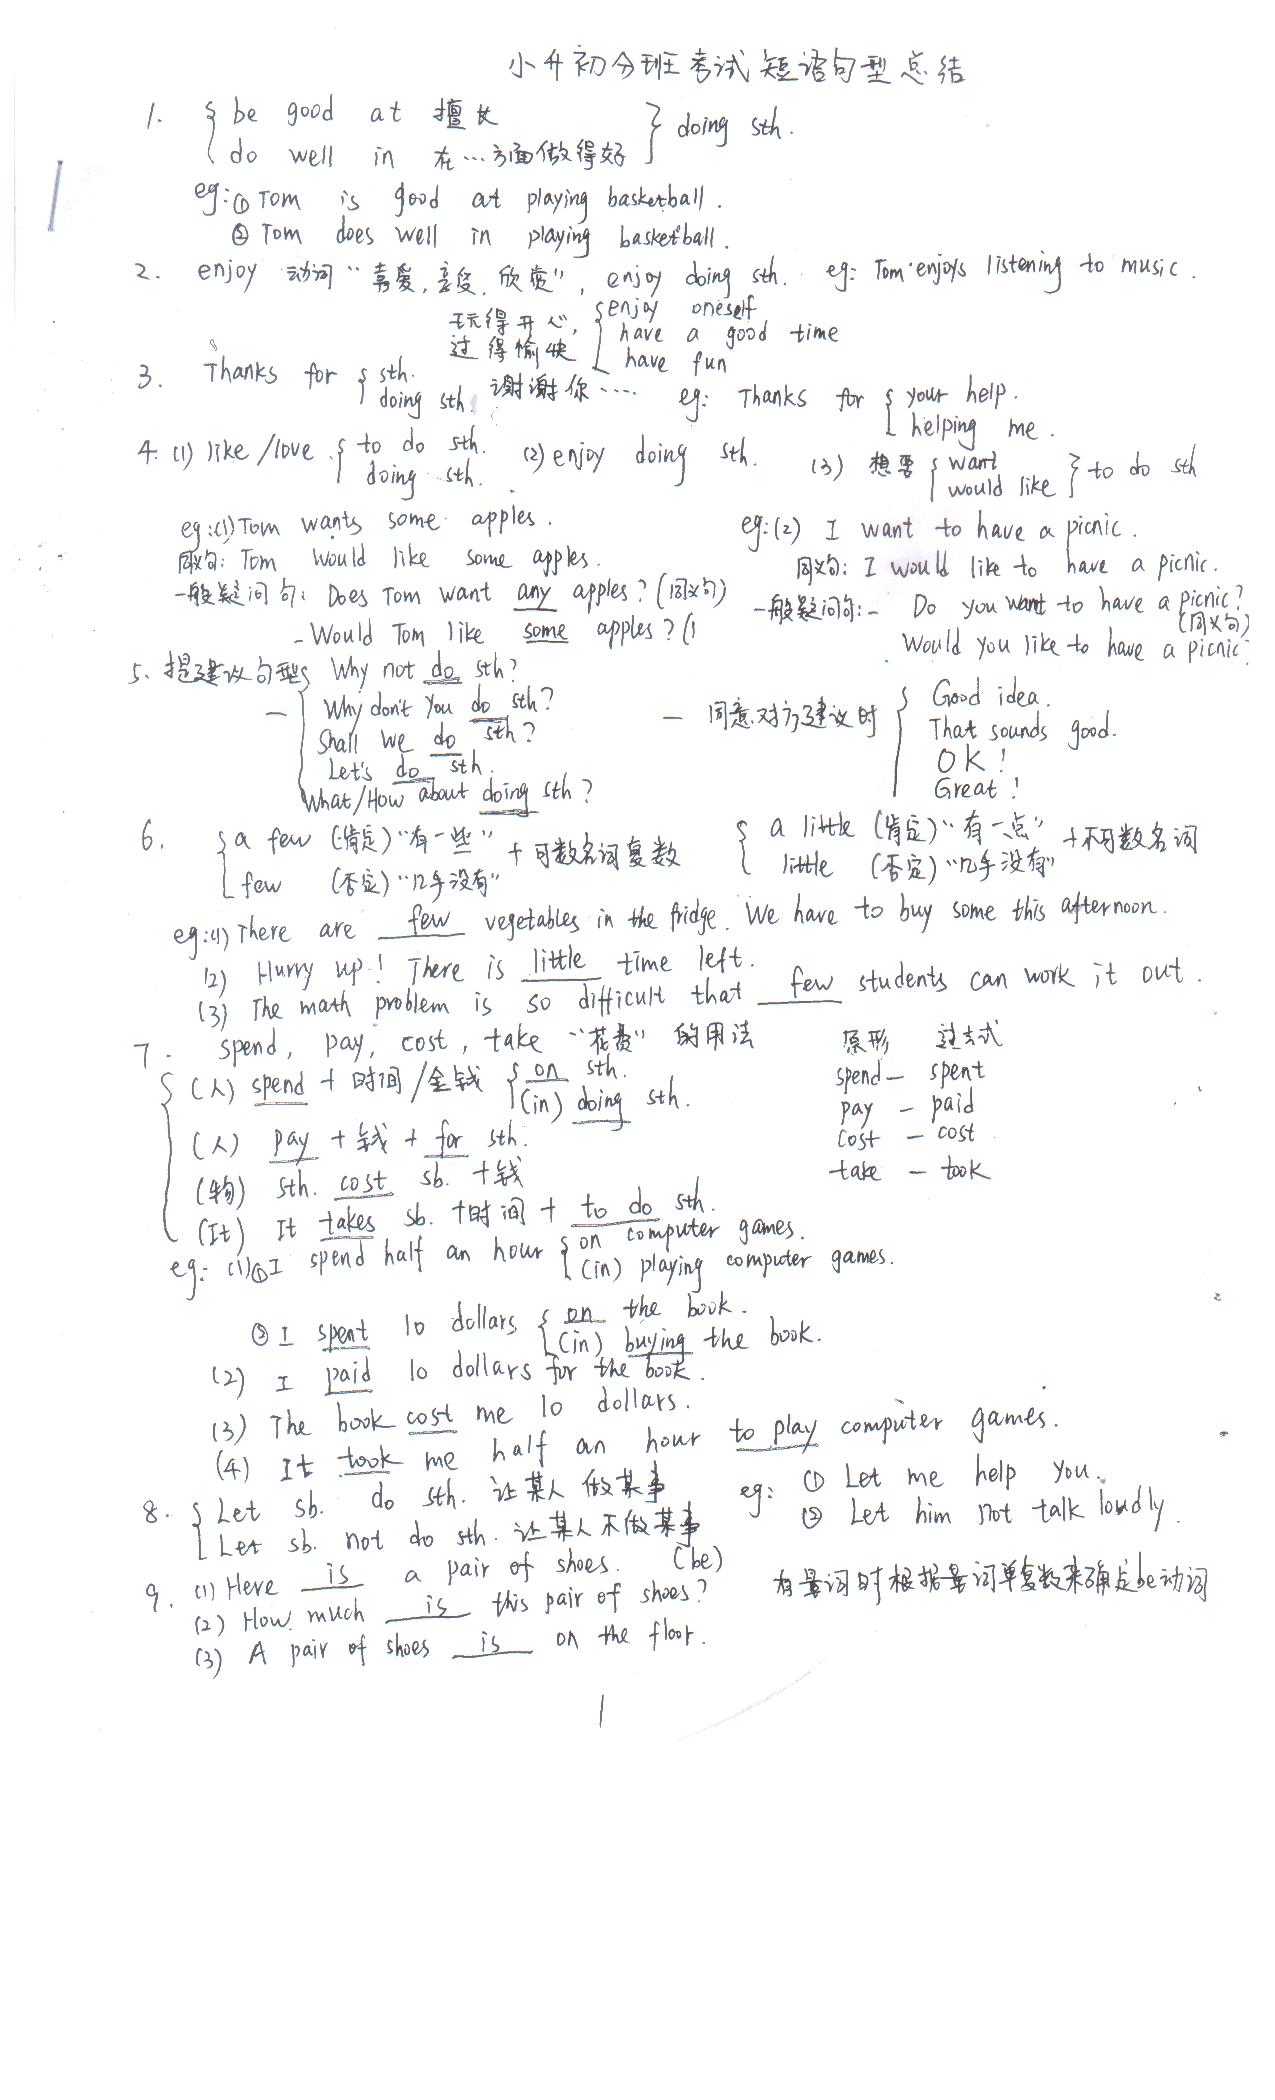 小升初分班考试短语句型总结
1. be good at 擅长
do well in 在…方面做得好
doing sth.
eg: ① Tom is good at playing basketball.
② Tom does well in playing basketball.
2. enjoy 动词 "喜爱, 享受, 欣赏", enjoy doing sth. eg: Tom enjoys listening to music.
玩得开心,
过得愉快
enjoy oneself
have a good time
have fun
3. Thanks for sth.
doing sth.
谢谢你……
eg: Thanks for your help.
helping me.
4. (1) like /love to do sth.
doing sth.
(2) enjoy doing sth.
(3) 想要 want
would like
to do sth
eg: (1) Tom wants some apples.
同义句: Tom would like some apples.
一般疑问句: Does Tom want any apples? (同义句)
- Would Tom like some apples? (
eg: (2) I want to have a picnic.
同义句: I would like to have a picnic.
一般疑问句: - Do you want to have a picnic?
(同义句)
Would you like to have a picnic?
5. 提建议句型 Why not do sth?
Why don't you do sth?
Shall we do sth?
Let's do sth.
What/How about doing sth?
— 同意对方建议时
Good idea.
That sounds good.
OK!
Great!
6. a few (肯定) "有一些"
few (否定) "几乎没有"
+ 可数名词复数
a little (肯定) "有一点"
little (否定) "几乎没有"
+ 不可数名词
eg: (1) There are few vegetables in the fridge. We have to buy some this afternoon.
(2) Hurry up! There is little time left.
(3) The math problem is so difficult that few students can work it out.
7. spend, pay, cost, take "花费" 的用法
(人) spend + 时间/金钱 on sth.
(in) doing sth.
(人) pay + 钱 + for sth.
(物) sth. cost sb. + 钱
(It) It takes sb. + 时间 + to do sth.
原形 过去式
spend — spent
pay — paid
cost — cost
take — took
eg: (1) ① I spend half an hour on computer games.
(in) playing computer games.
② I spent 10 dollars on the book.
(in) buying the book.
(2) I paid 10 dollars for the book.
(3) The book cost me 10 dollars.
(4) It took me half an hour to play computer games.
8. Let sb. do sth. 让某人做某事
Let sb. not do sth. 让某人不做某事
eg: ① Let me help you.
② Let him not talk loudly.
9. (1) Here is a pair of shoes. (be)
(2) How much is this pair of shoes?
(3) A pair of shoes is on the floor.
有量词时根据量词单复数来确定be动词
1